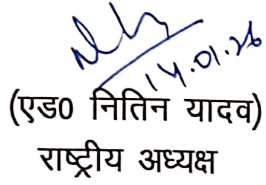 14.01.26
(एड0 नितिन यादव)
राष्ट्रीय अध्यक्ष